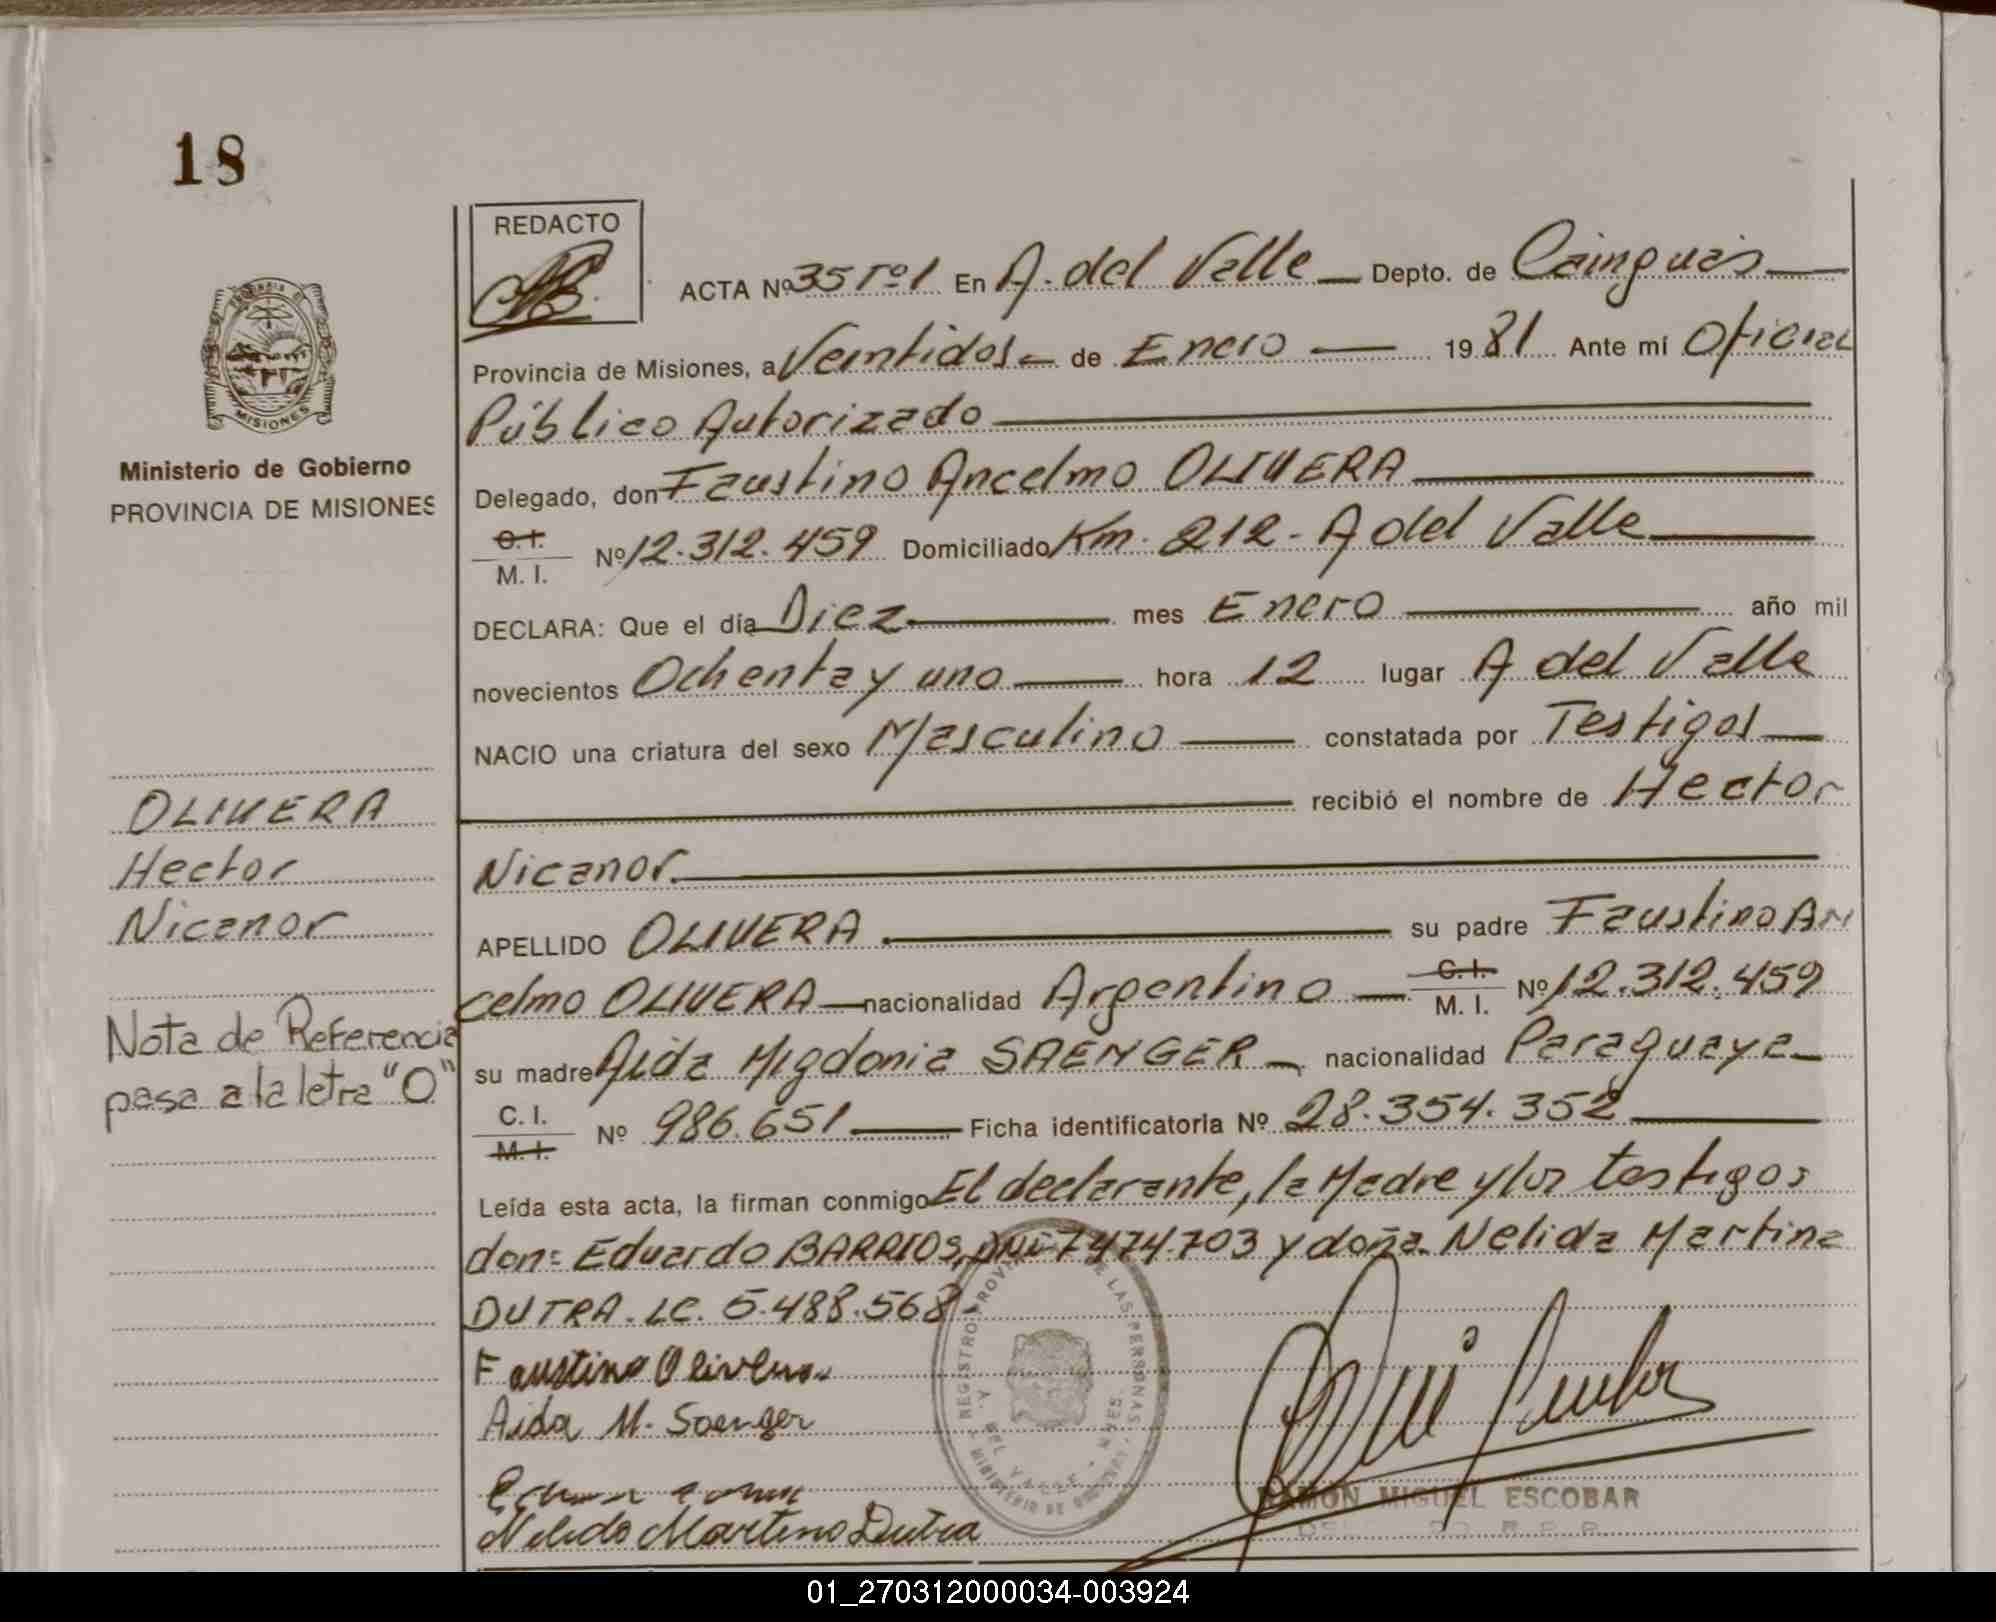 18
REDACTO
ACTA Nº 35 Tº1 En A. del Valle Depto. de Cainguás
Provincia de Misiones, a Veintidos de Enero 1981 Ante mí Oficial
Público Autorizado
Delegado, don Faustino Ancelmo OLIVERA
C. I.
M. I. Nº 12.312.459 Domiciliado Km. 212 - A del Valle
DECLARA: Que el día Diez mes Enero año mil
novecientos Ochenta y uno hora 12 lugar A del Valle
NACIO una criatura del sexo Masculino constatada por Testigos
recibió el nombre de Hector
Nicanor
APELLIDO OLIVERA su padre Faustino An
celmo OLIVERA nacionalidad Argentino C. I. M. I. Nº 12.312.459
su madre Aida Migdonia SAENGER nacionalidad Paraguaya
C. I.
M. I. Nº 986.651 Ficha identificatoria Nº 28.354.352
Leída esta acta, la firman conmigo El declarante, la Madre y los testigos
don: Eduardo BARRIOS, DNI 7.474.703 y doña Nelida Martina
DUTRA. LC. 5.488.568
Faustino Olivera
Aida M. Saenger
Nelida Martina Dutra
RAMON MIGUEL ESCOBAR
REGISTRO PROVINCIAL DE LAS PERSONAS
A. DEL VALLE - MNES.
MINISTERIO DE GOBIERNO
MISIONES
Ministerio de Gobierno
PROVINCIA DE MISIONES
OLIVERA
Hector
Nicanor
Nota de Referencia
pasa a la letra "O"
01_270312000034-003924